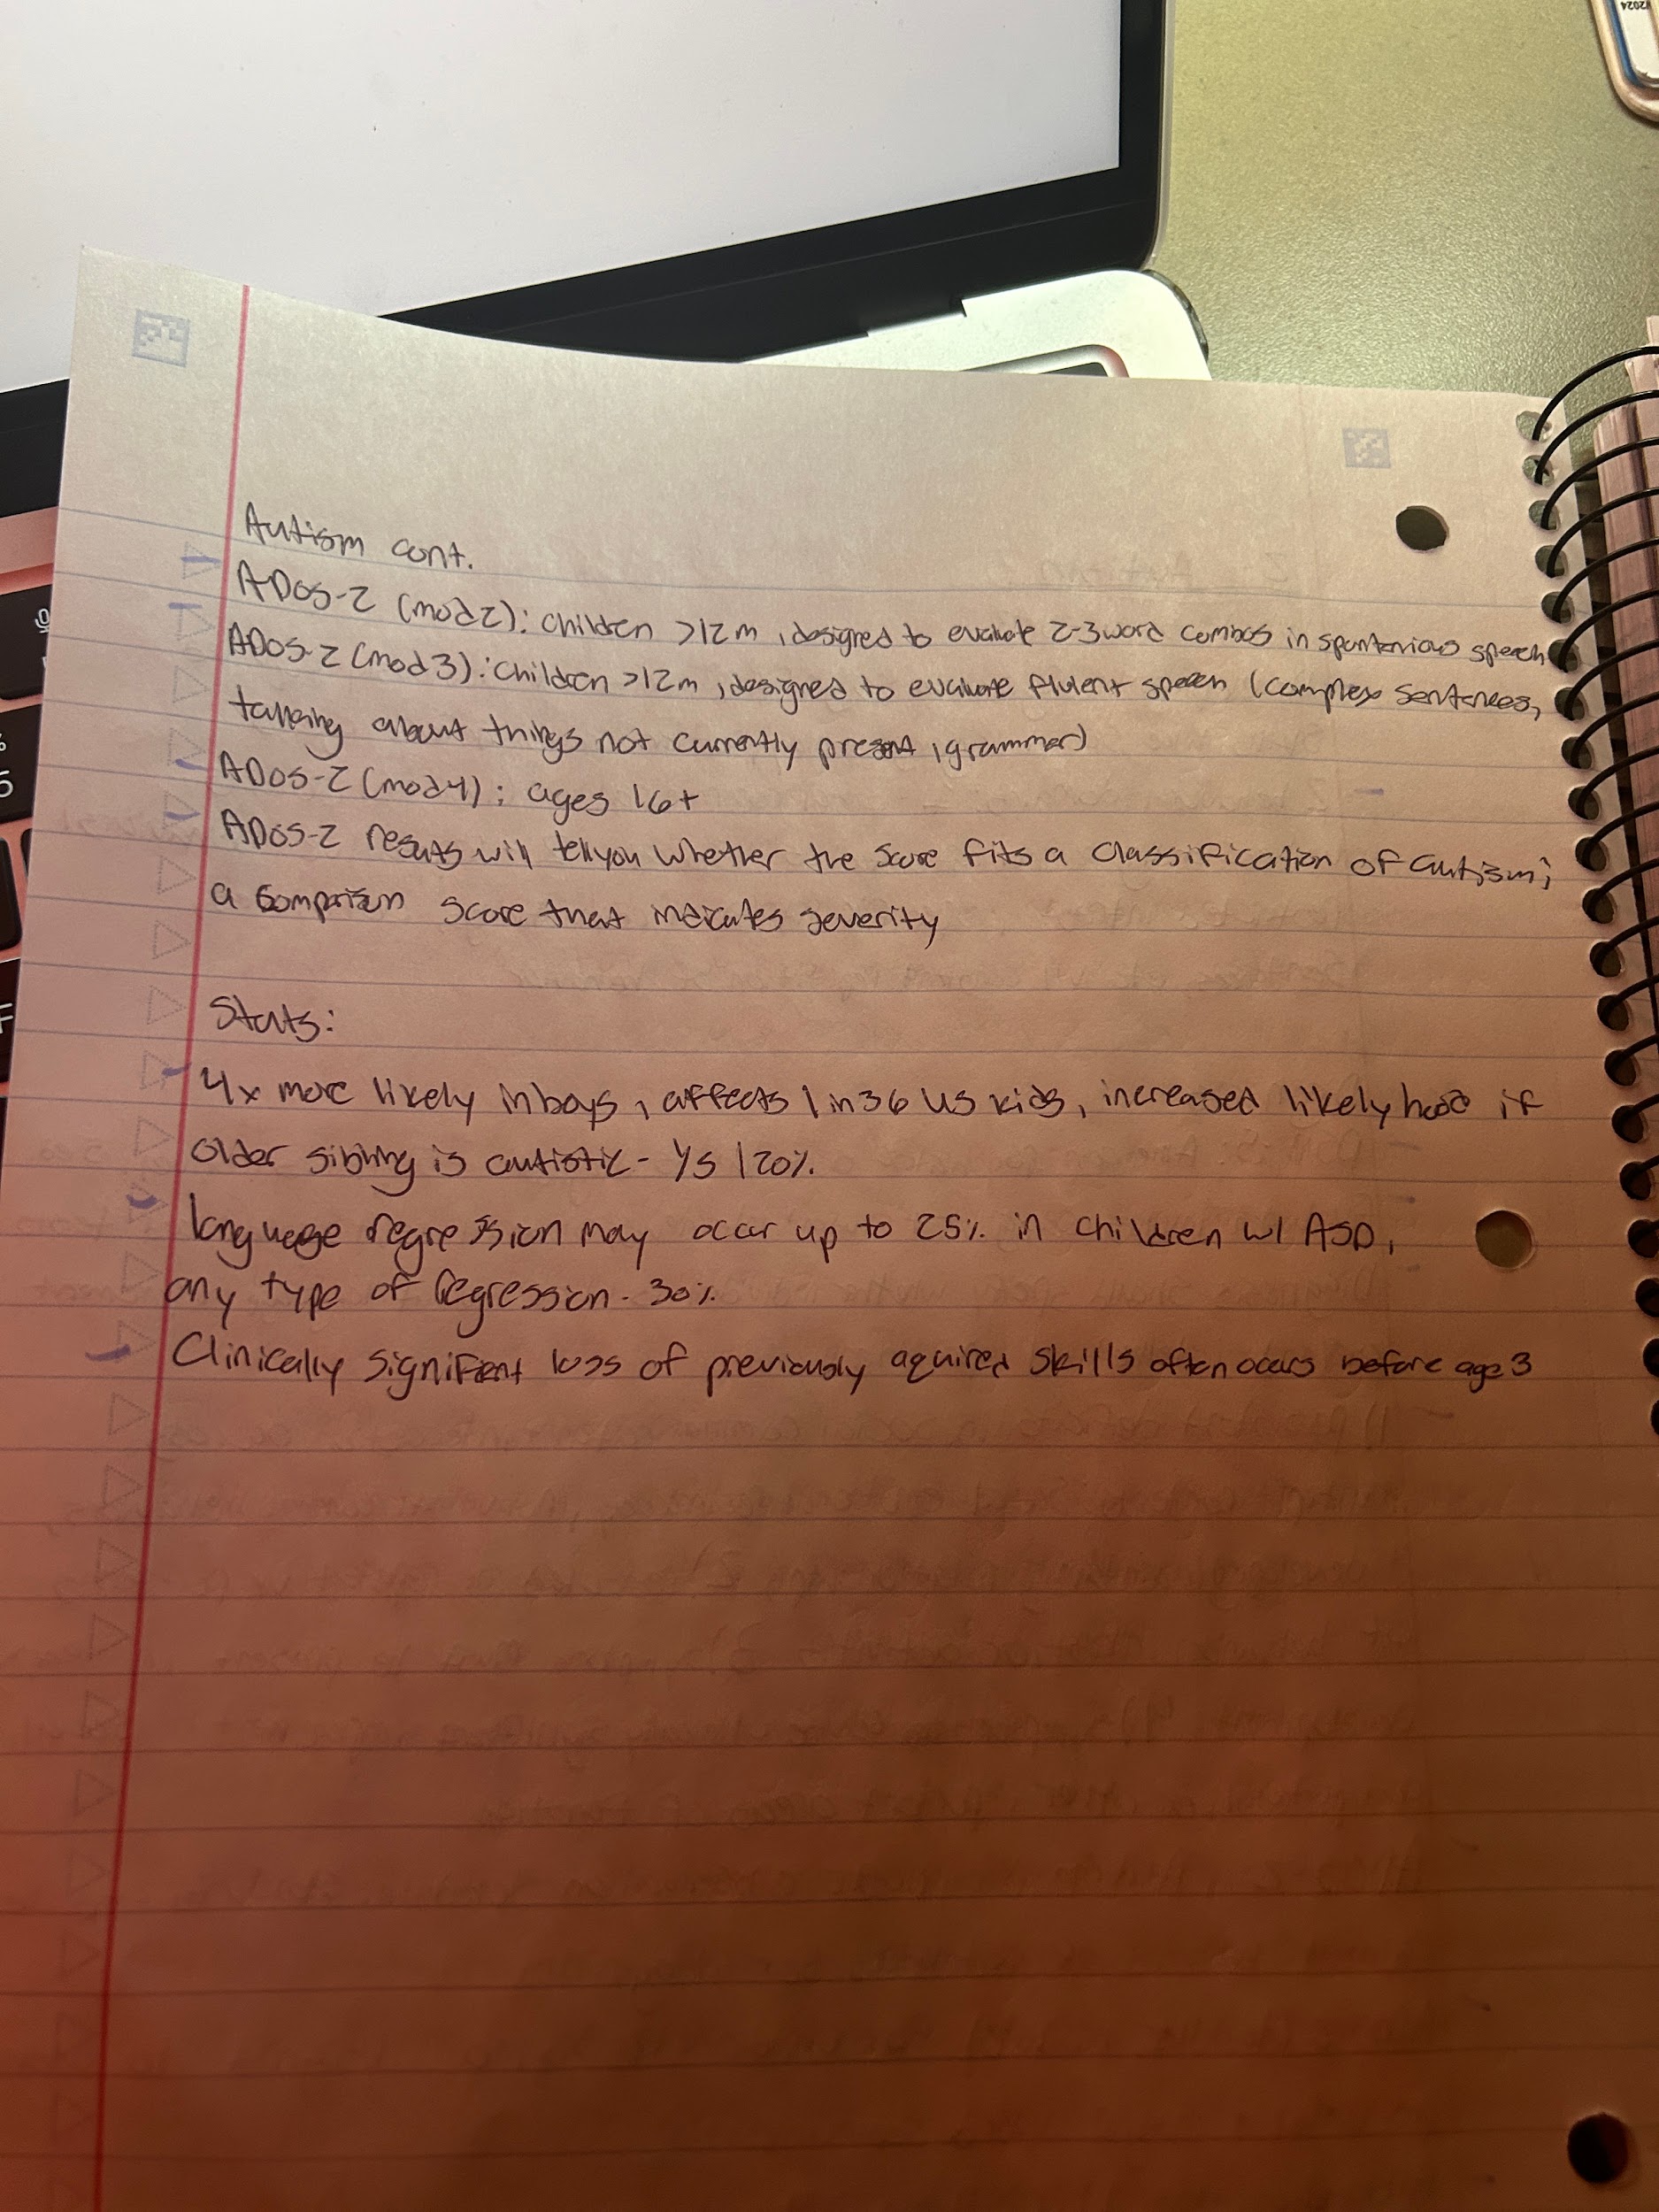 Autism cont.
ADOS-2 (mod2): children >12m, designed to evaluate 2-3 word combos in spontanious speech
ADOS-2 (mod 3): children >12m, designed to evaluate fluent speech (complex sentences,
talking about things not currently present, grammar)
ADOS-2 (mod4): ages 16+
ADOS-2 results will tell you whether the score fits a classification of autism;
a comparison score that indicates severity
Stats:
4x more likely in boys, affects 1 in 36 US kids, increased likelyhood if
older sibling is autistic - 1/5 | 20%.
language regression may occur up to 25% in children w/ ASD,
any type of regression - 30%
Clinically signifient loss of previously aquired skills often occurs before age 3
2024
5
F